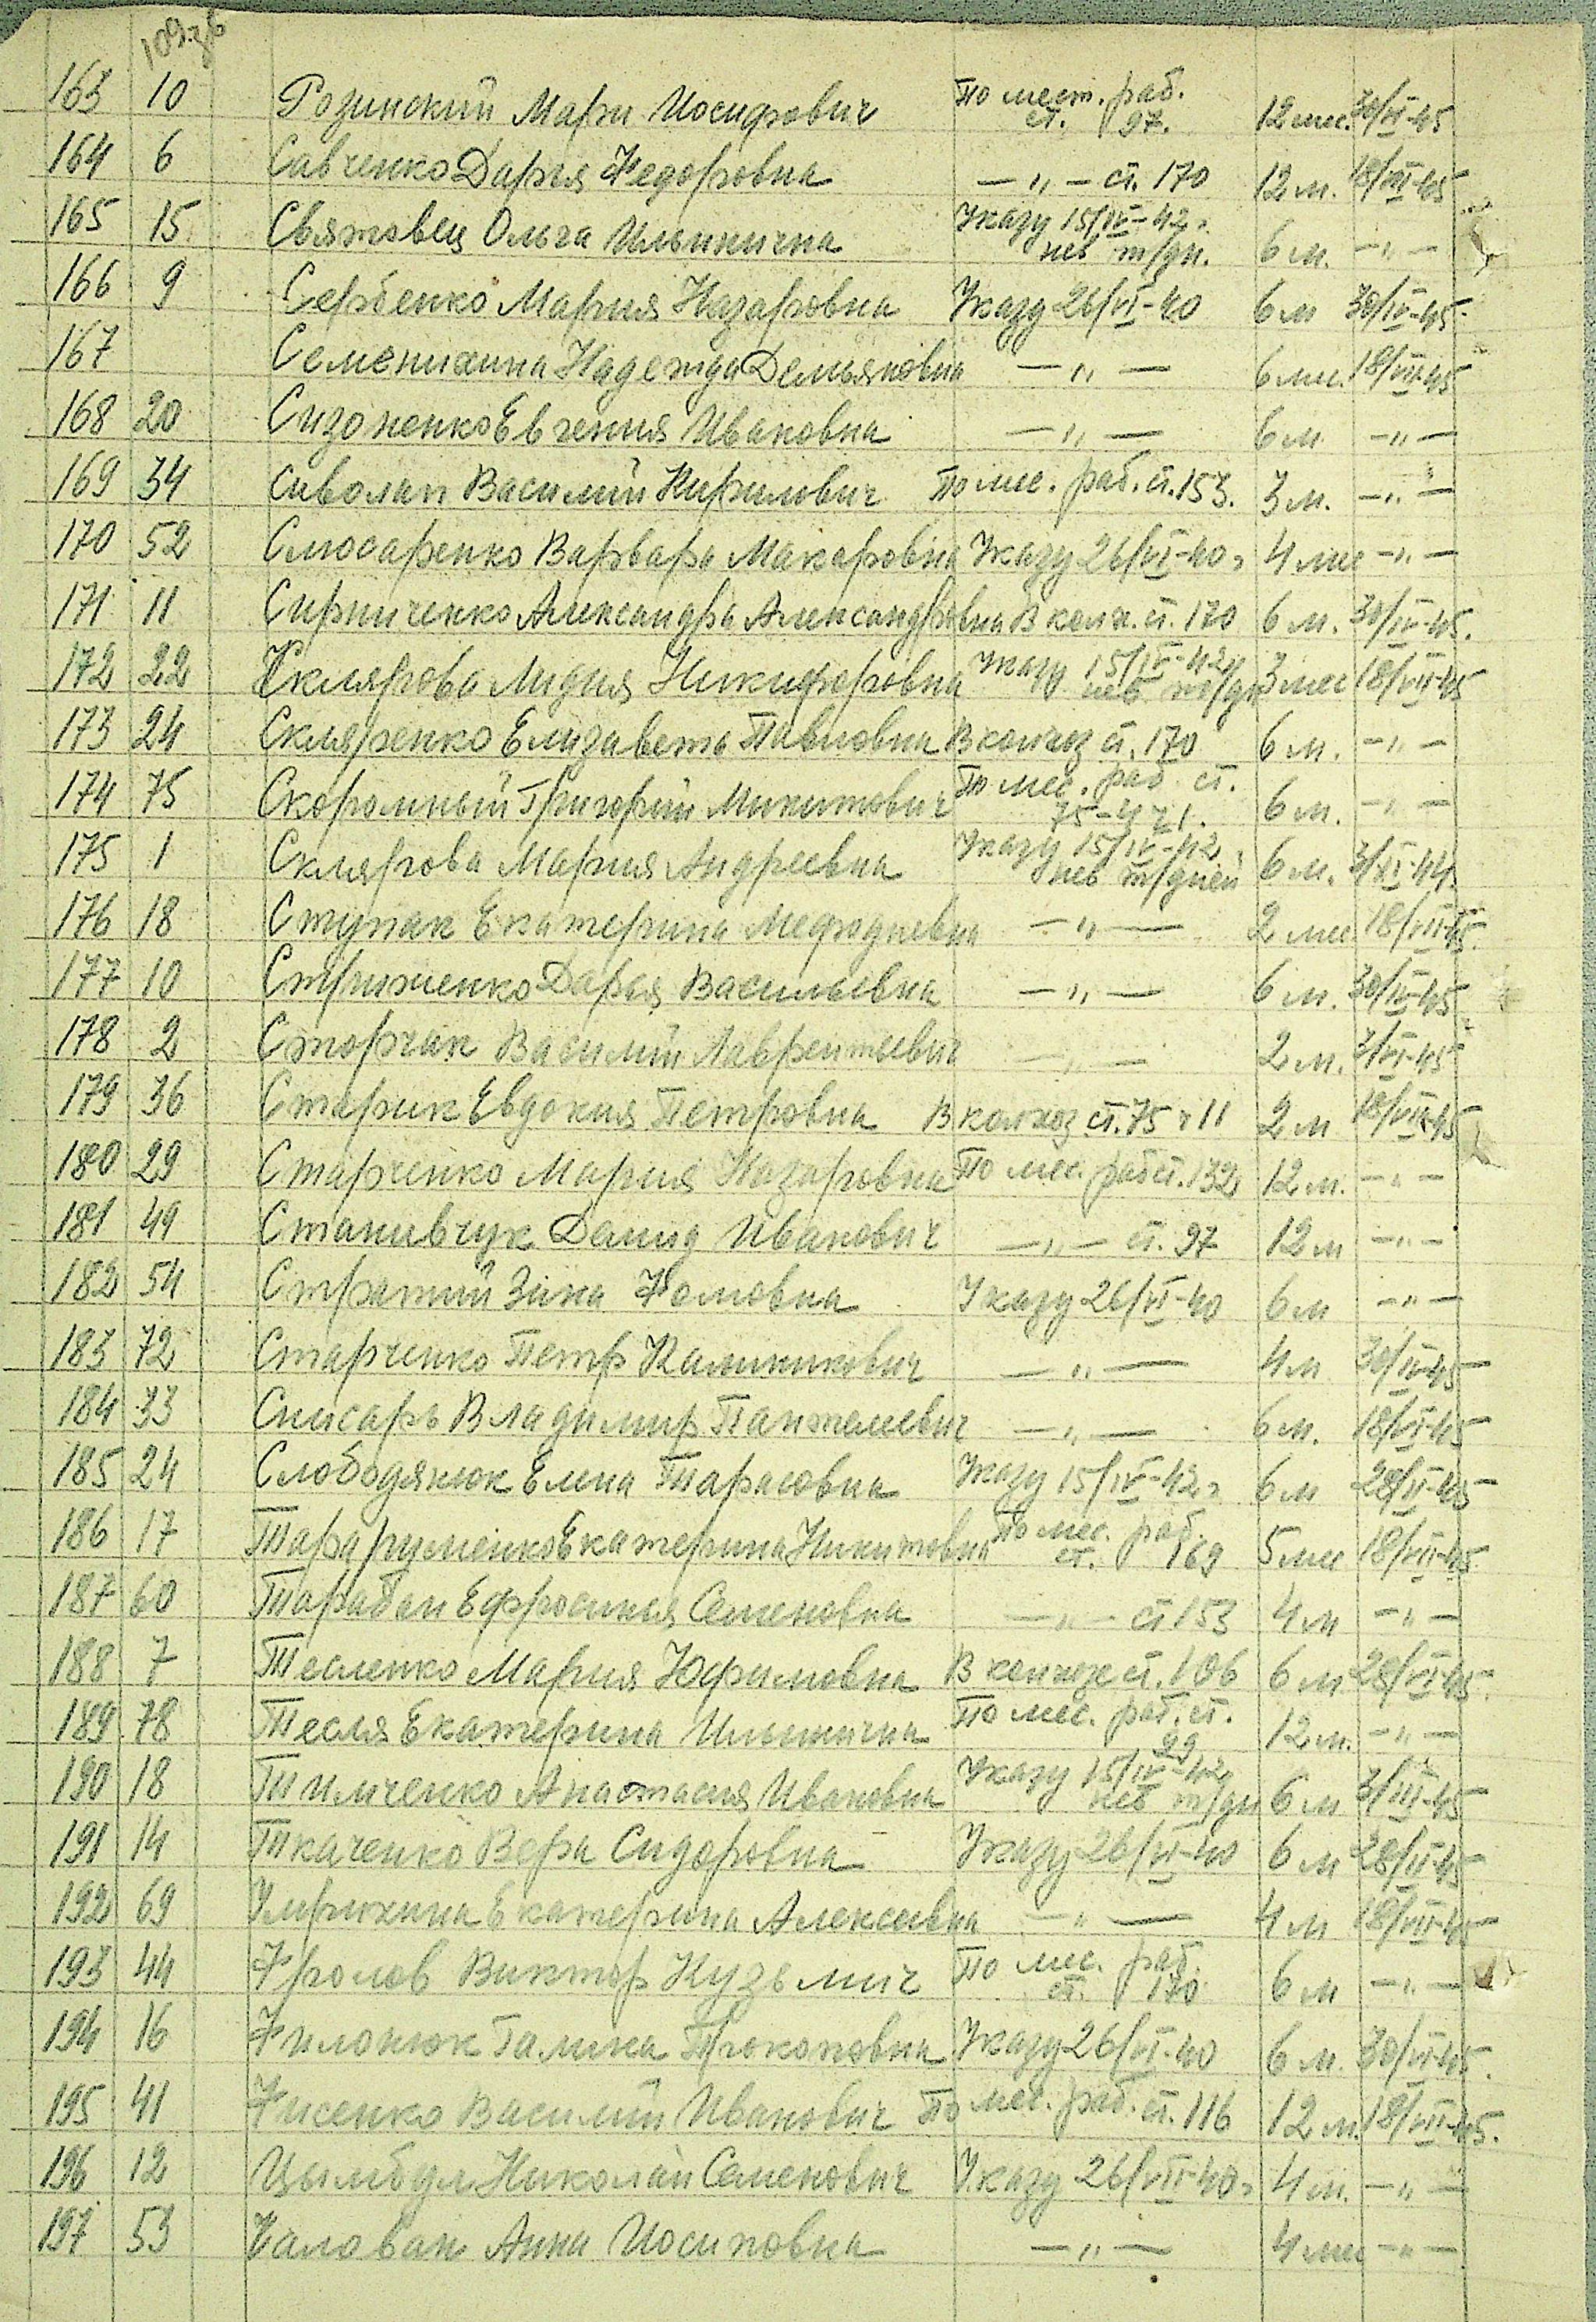 163 10 Розинский Марк Иосифович По мест. раб. ст. 97. 12 мес. 30/VI-45
164 6 Савченко Дарья Федоровна —„— ст. 170 12 м. 18/VII-45
165 15 Святовец Ольга Ильинична Указу 15/IV-42г. нев т/дн. 6 м. —„—
166 9 Сербенко Мария Назаровна Указу 26/VI-40 6 м 30/IV-45.
167 Семенихина Надежда Демьяновна —„— 6 мес. 18/VII-45
168 20 Сизоненко Евгения Ивановна —„— 6 м. —„—
169 34 Сиволап Василий Кирилович По мес. раб. ст. 153. 3 м. —„—
170 52 Слюсаренко Варвара Макаровна Указу 26/VI-40г 4 мес —„—
171 11 Сирниченко Александра Александровна В колх. ст. 170 6 м. 30/IV-45.
172 22 Склярова Лидия Никифоровна Указу 15/IV-42г нев т/дн 3 мес 18/VII-45
173 24 Скляренко Елизавета Павловна В колхоз ст. 170 6 м. —„—
174 75 Скоромный Григорий Микитович По мес. раб ст. 75-ч 1. 6 м. —„—
175 1 Склярова Мария Андреевна Указу 15/IV-42. нев т/дней 6 м. 3/XI-44.
176 18 Ступак Екатерина Мефодиевна —„— 2 мес. 18/VII-45.
177 10 Стриженко Дарья Васильевна —„— 6 м. 30/IV-45
178 2 Сторчак Василий Лаврентьевич —„— 2 м. 3/VI-45
179 36 Старик Евдокия Петровна В колхоз ст. 75 ч 11 2 м 18/VII-45
180 29 Старченко Мария Назаровна По мес. раб ст. 132 12 м. —„—
181 49 Станивчук Демид Иванович —„— ст. 97 12 м —„—
182 54 Стратий Зина Фомовна Указу 26/VI-40 6 м —„—
183 72 Старченко Петр Калиникович —„— 4 м 30/IV-45
184 33 Снисарь Владимир Пантелевич —„— 6 м. 18/VI-45
185 24 Слободянюк Елена Тарасовна Указу 15/IV-42г 6 м 28/II-45
186 17 Тарарученко Екатерина Никитовна По мес. раб. ст. 169 5 мес 18/VII-45.
187 60 Тарабан Ефросиния Семеновна —„— ст 153 4 м —„—
188 7 Тесленко Мария Юфимовна В колхозе ст. 106 6 м 28/II-45.
189 78 Тесля Екатерина Ильинична По мес. раб. ст. 29 12 м. —„—
190 18 Тимченко Анастасия Ивановна Указу 15/IV-42г нев т/дн 6 м 3/III-45
191 14 Ткаченко Вера Сидоровна Указу 26/VI-40 6 м 28/II-45
192 69 Умрихина Екатерина Алексеевна —„— 4 м 18/VII-45
193 44 Фролов Виктор Кузьмич По мес. раб. ст. 170 6 м —„—
194 16 Филонюк Галина Прокоповна Указу 26/VI-40 6 м. 30/VI-45.
195 41 Фисенко Василий Иванович По мес. раб. ст. 116 12 м. 18/VII-45.
196 12 Цымбал Николай Семенович Указу 26/VII-40г 4 м. —„—
197 53 Чалован Анна Иосиповна —„— 4 мес —„—